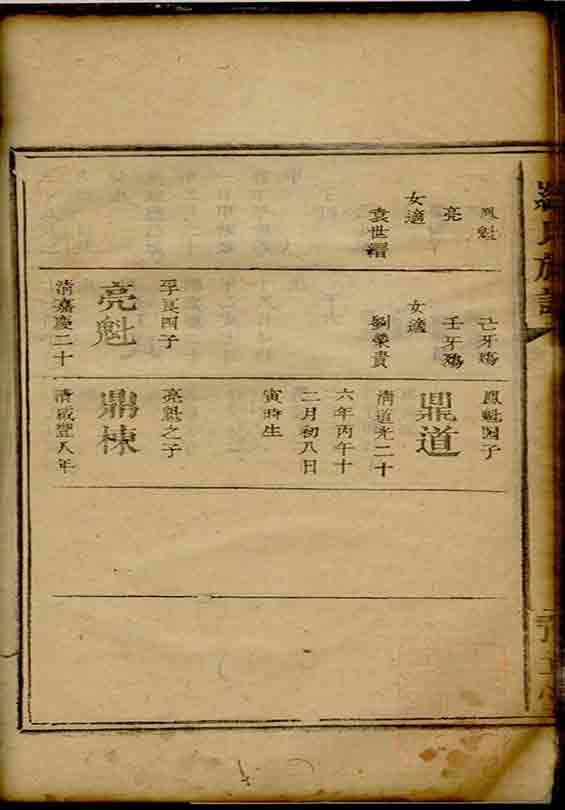 氏族譜
鳳魁
亮
女適
袁世
己牙殤
壬牙殤
女適
劉榮貴
孚良四子
亮魁
清嘉慶二十
鳳魁四子
鼎道
清道光二十
六年丙午十
二月初八日
寅時生
亮魁之子
鼎棟
清咸豐八年